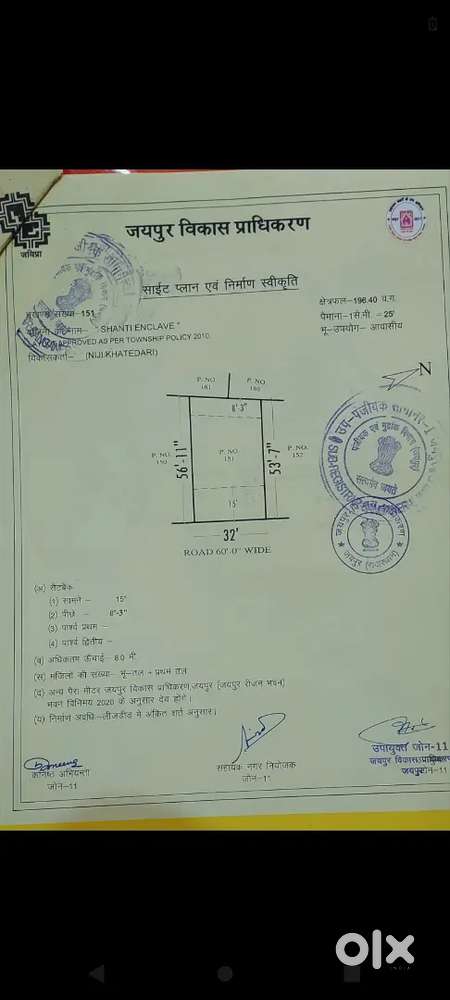 जविप्रा
जयपुर विकास प्राधिकरण
साईट प्लान एवं निर्माण स्वीकृति
संख्या-151
क्षेत्रफल-196.40 व.ग.
"SHANTI ENCLAVE"
पैमाना-1से.मी. =25'
APPROVED AS PER TOWNSHIP POLICY 2010.
भू-उपयोग- आवासीय
विकासकर्ता- (NIJI KHATEDARI)
N
P. NO. 161
P. NO. 160
8'-3"
P. NO. 150
56'-11"
P. NO. 151
53'-7"
P. NO. 152
15'
32'
ROAD 60'-0" WIDE
(अ) सेटबेक
(1) सामने- 15'
(2) पीछे- 8'-3"
(3) पार्श्व प्रथम-
(4) पार्श्व द्वितीय-
(ब) अधिकतम ऊँचाई- 8.0 मी
(स) मंजिलों की संख्या- भू-तल + प्रथम तल
(द) अन्य पैरा मीटर जयपुर विकास प्राधिकरण,जयपुर (जयपुर रीजन भवन)
भवन विनिमय 2020 के अनुसार देय होंगे।
(य) निर्माण अवधि-लीजडीड मे अंकित शर्त अनुसार।
कनिष्ठ अभियन्ता
जोन-11
सहायक नगर नियोजक
जोन-11
उपायुक्त जोन-11
जयपुर विकास प्राधिकरण
जयपुर
जोन-11
सत्यमेव जयते
जयपुर विकास प्राधिकरण
जयपुर (राजस्थान)
olx
INDIA